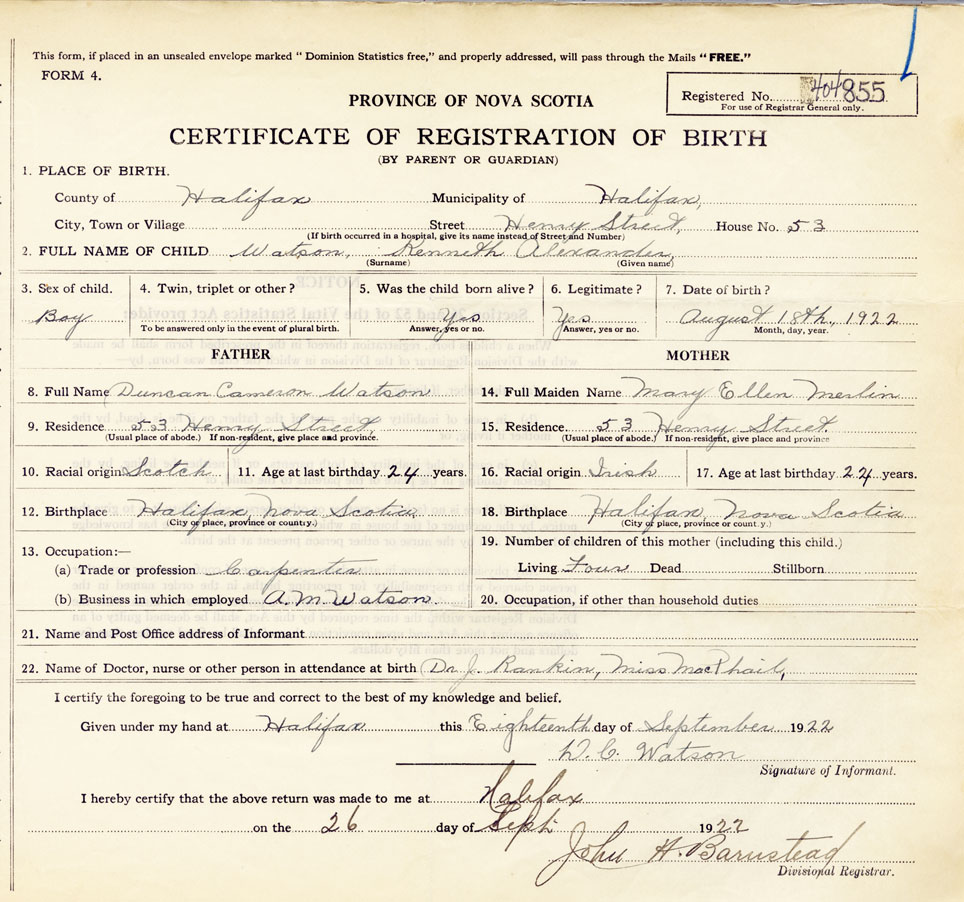 This form, if placed in an unsealed envelope marked " Dominion Statistics free," and properly addressed, will pass through the Mails "FREE."
FORM 4.
Registered No. 404855
For use of Registrar General only.
PROVINCE OF NOVA SCOTIA
CERTIFICATE OF REGISTRATION OF BIRTH
(BY PARENT OR GUARDIAN)
1. PLACE OF BIRTH.
County of Halifax Municipality of Halifax,
City, Town or Village Street Henry Street, House No. 53
(If birth occurred in a hospital, give its name instead of Street and Number)
2. FULL NAME OF CHILD Watson, Kenneth Alexander,
(Surname) (Given name)
3. Sex of child. 4. Twin, triplet or other? 5. Was the child born alive? 6. Legitimate? 7. Date of birth?
Boy Yes Yes August 18th, 1922
To be answered only in the event of plural birth. Answer, yes or no. Answer, yes or no. Month, day, year.
FATHER MOTHER
8. Full Name Duncan Cameron Watson 14. Full Maiden Name Mary Ellen Merlin
9. Residence 53 Henry Street 15. Residence. 53 Henry Street
(Usual place of abode.) If non-resident, give place and province. (Usual place of abode.) If non-resident, give place and province
10. Racial origin Scotch 11. Age at last birthday 24 years. 16. Racial origin Irish 17. Age at last birthday 24 years.
12. Birthplace Halifax, Nova Scotia 18. Birthplace Halifax, Nova Scotia
(City or place, province or country.) (City or place, province or country.)
13. Occupation:— 19. Number of children of this mother (including this child.)
(a) Trade or profession Carpenter Living Four Dead Stillborn
(b) Business in which employed A. M Watson. 20. Occupation, if other than household duties
21. Name and Post Office address of Informant
22. Name of Doctor, nurse or other person in attendance at birth Dr. J. Rankin, Miss MacPhail,
I certify the foregoing to be true and correct to the best of my knowledge and belief.
Given under my hand at Halifax this Eighteenth day of September 1922
D. C. Watson
Signature of Informant.
I hereby certify that the above return was made to me at Halifax
on the 26 day of Sept 1922
John H. Barnstead
Divisional Registrar.